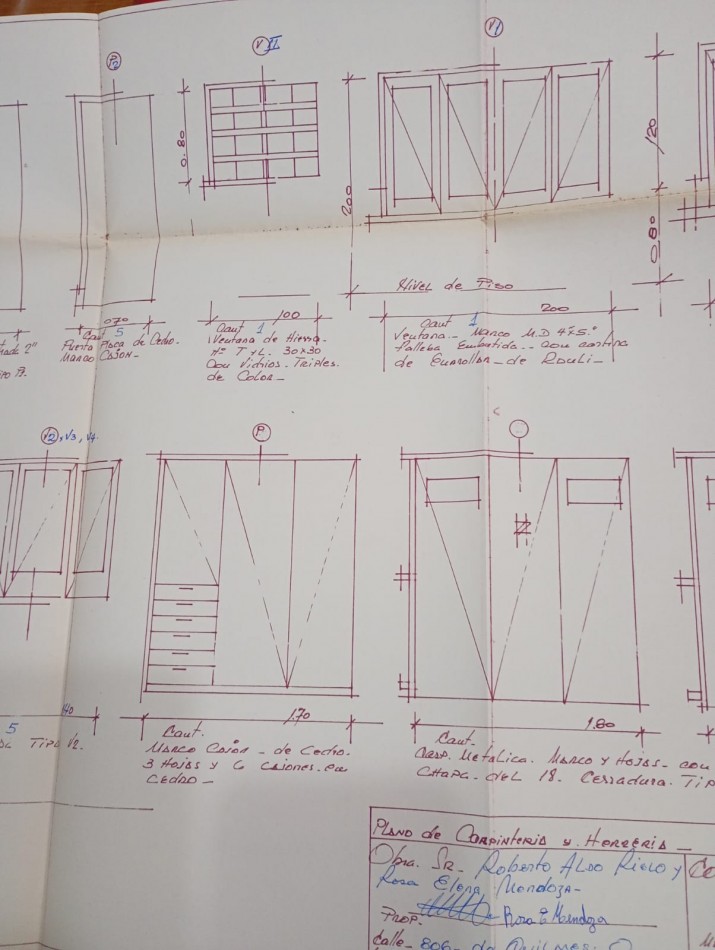 P2
V II
V1
0.80
200
120
0.80
Nivel de Piso
070
100
200
Cant 5
Puerta Placa de Cedro.
Marco Cajon-
Cant 1
Ventana de Hierro-
Nº T y L. 30x30
Con Vidrios. Triples.
de Color-
Cant 1
Ventana- Marco M.D 4x5."
Falleba Embutida-- con cortina
de Enrollar- de Rouli-
V2, V3, V4
P
5
Tipo V2.
1,70
1.80
Cant.
Marco Cajon - de Cedro.
3 Hojas y 6 cajones. en
Cedro-
Cant.
Carp. Metalica. Marco y Hojas- con
Chapa- del 18. Cerradura. Tip
Plano de Carpinteria y Herreria-
Obra. Sr- Roberto Aldo Rielo y
Rosa Elena Mendoza-
Prop.
Rosa E Mendoza
Calle- 806- de Quilmes-